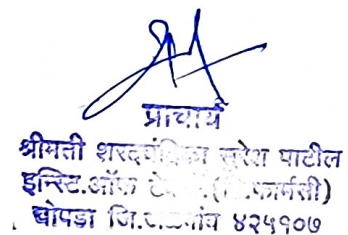 प्राचार्य
श्रीमती शरदचंद्रिका सुरेश पाटील
इन्स्टि.ऑफ (डि.फार्मसी)
चोपडा जि.जळगांव ४२५१०७